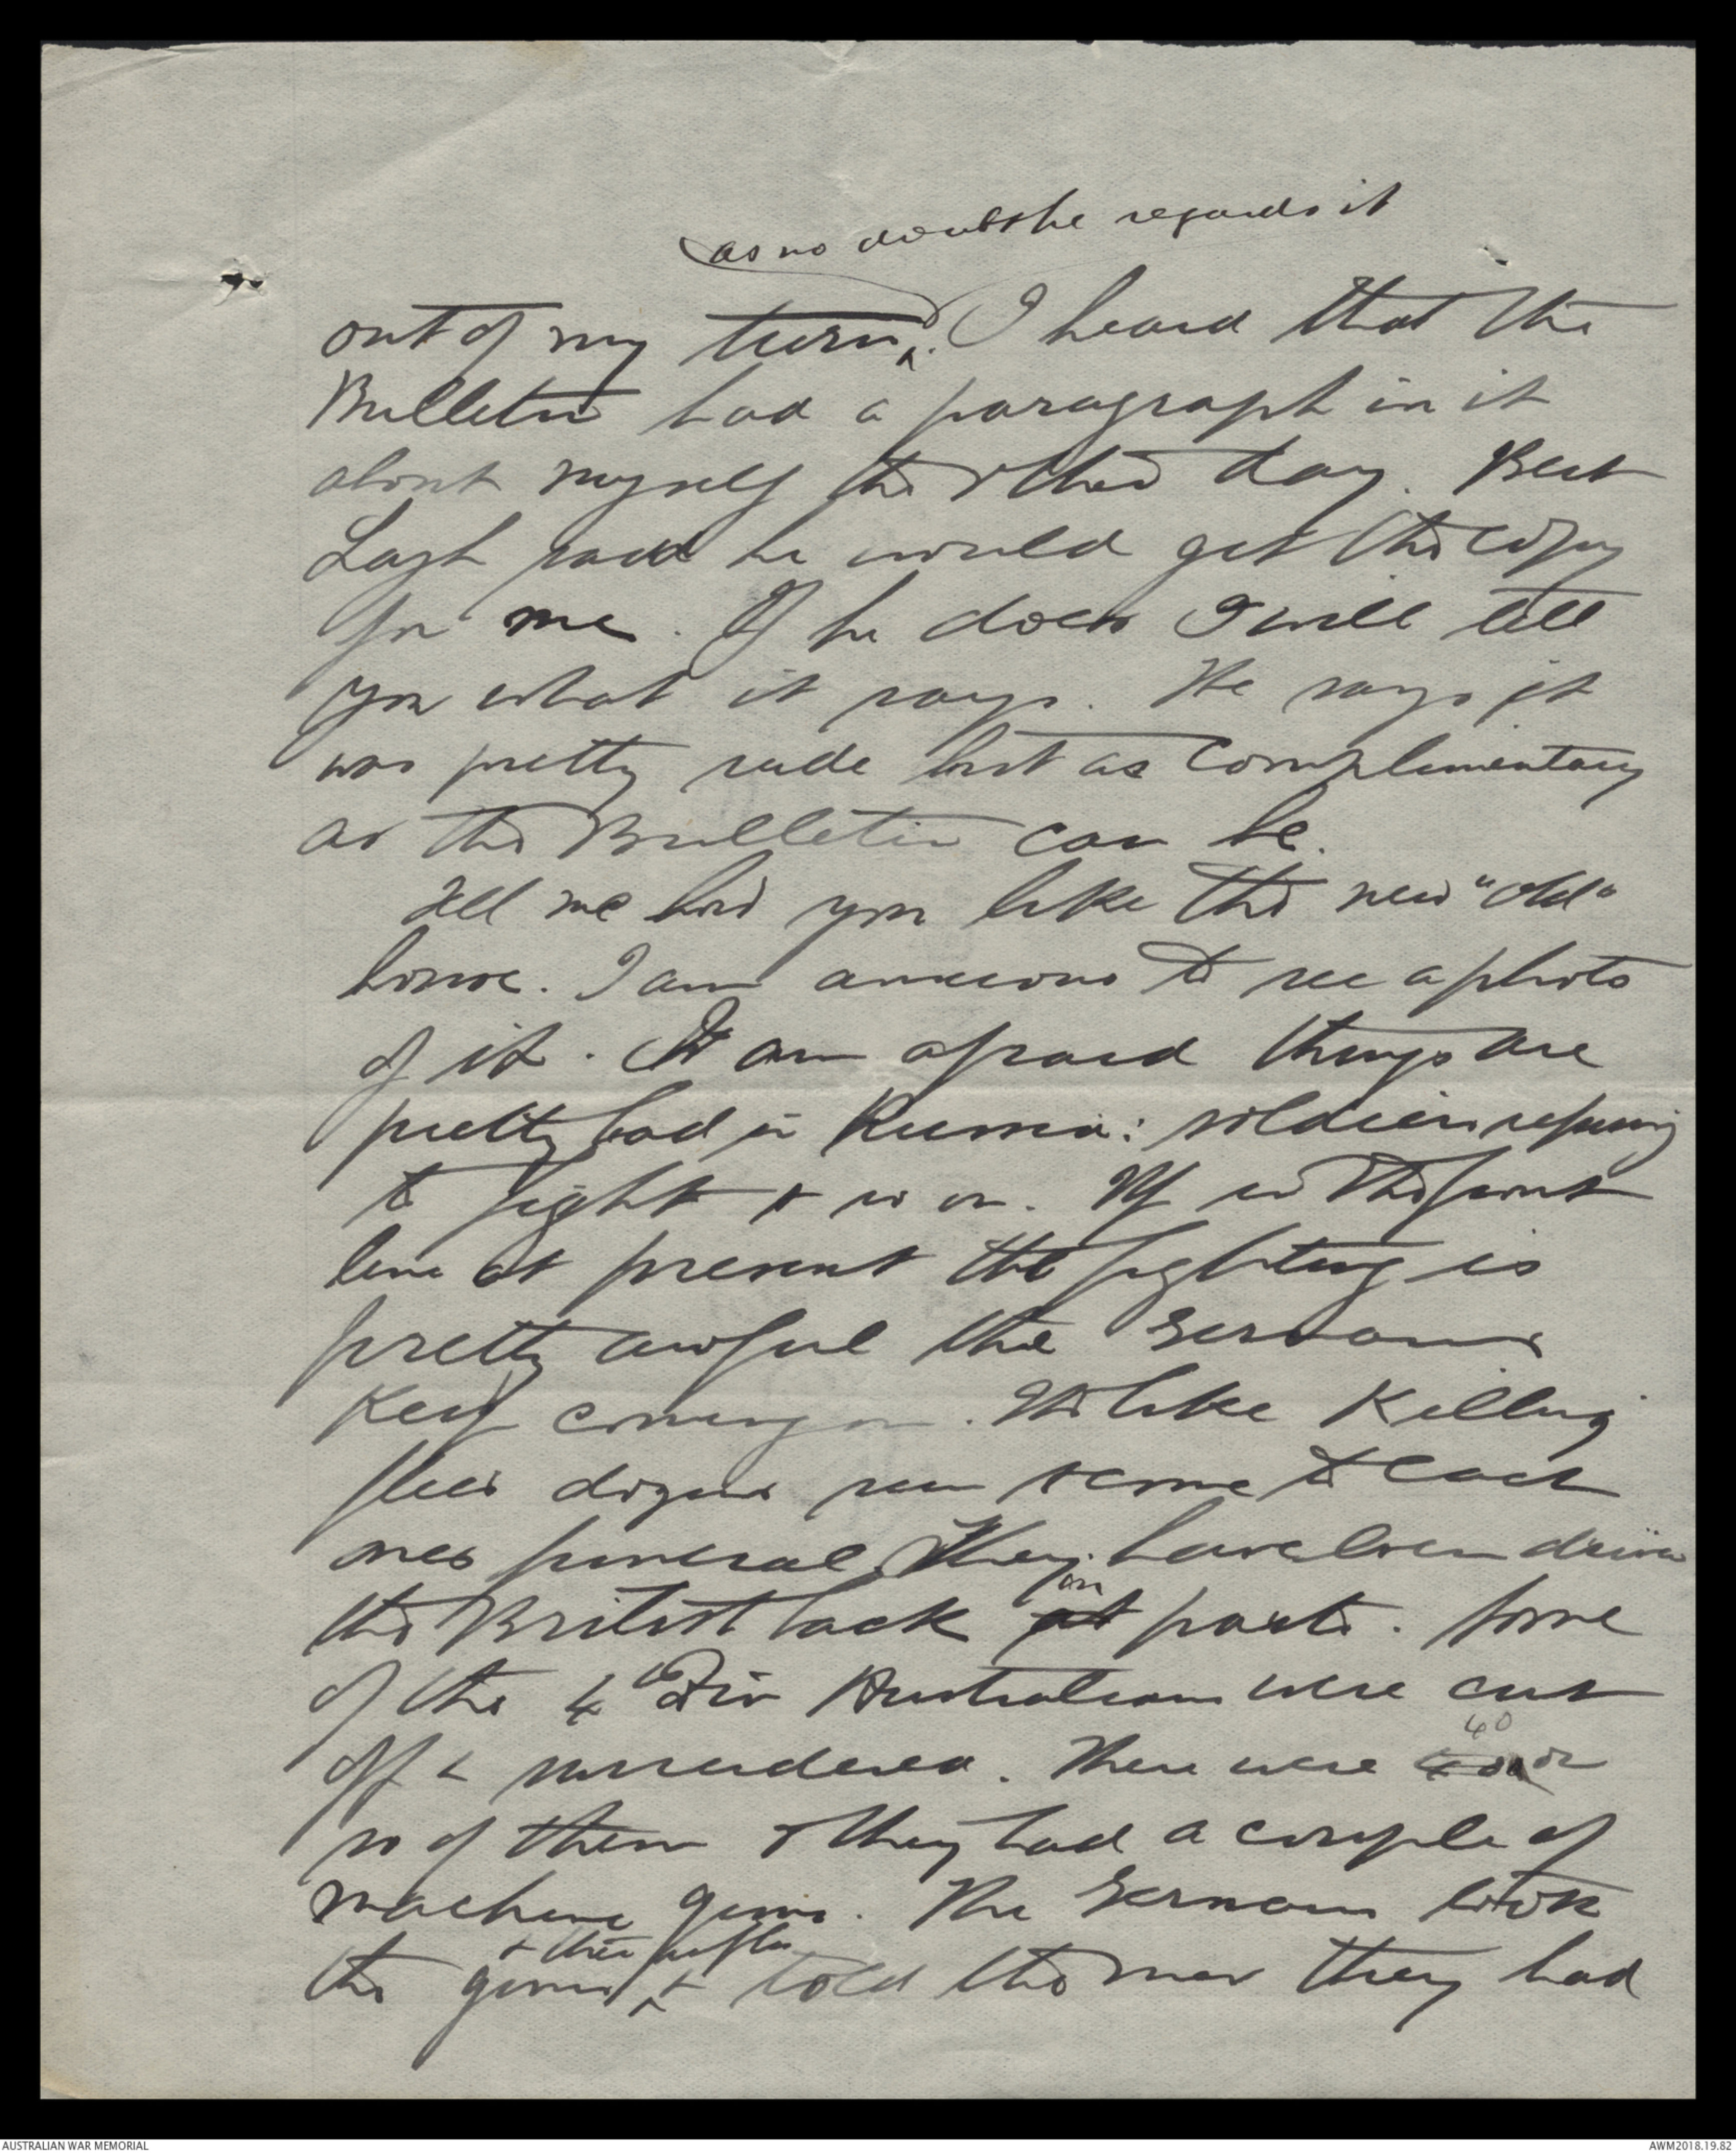 as no doubt he regards it
out of my turn. I heard that the
Bulletin had a paragraph in it
about myself the other day. Bert
Lash said he would get the copy
for me. If he does I will tell
you what it says. He says it
was pretty rude but as complimentary
as the Bulletin can be.
Tell me how you like the new "old"
house. I am anxious to see a photo
of it. I am afraid things are
pretty bad in Russia: soldiers refusing
to fight & so on. Up in the front
line at present the fighting is
pretty awful the Germans
keep coming on. It's like killing
flies dozens run & come to each
ones funeral. They have been driving
on
the British back at parts. Some
of the 4th Div Australians were cut
40
off & surrendered. There were or
so of them & they had a couple of
machine guns. The Germans took
& their rifles
the guns & told the men they had
AUSTRALIAN WAR MEMORIAL
AWM2018.19.82